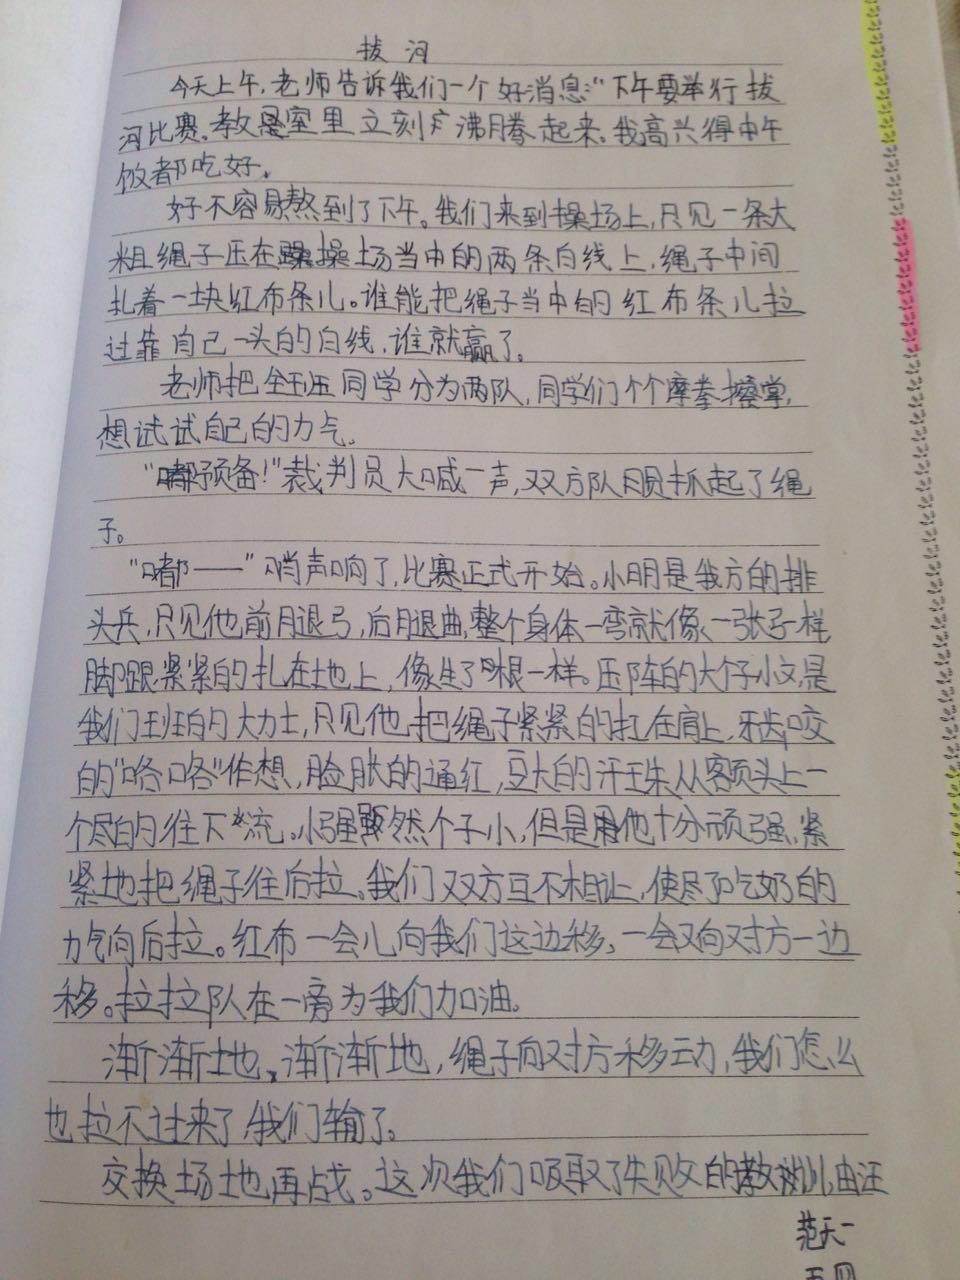 拔河
今天上午,老师告诉我们一个好消息:“下午要举行拔
河比赛。教室里立刻沸腾起来。我高兴得中午
饭都吃好。
好不容易熬到了下午。我们来到操场上,只见一条大
粗绳子压在操场当中的两条白线上,绳子中间
扎着一块红布条儿。谁能把绳子当中的红布条儿拉
过靠自己一头的白线,谁就赢了。
老师把全班同学分为两队,同学们个个摩拳擦掌,
想试试自己的力气。
“预备!”裁判员大喊一声,双方队员抓起了绳
子。
“嘟——”哨声响了,比赛正式开始。小明是我方的排
头兵,只见他前腿弓,后腿曲,整个身体一弯就像一张弓一样,
脚跟紧紧的扎在地上,像生了根一样。压阵的大个子小文,是
我们班的大力士,只见他把绳子紧紧的扛在肩上,牙齿咬
的“咯咯”作想,脸胀的通红,豆大的汗珠从额头上一
个尽的往下流。小强虽然个子小,但是他十分顽强,紧
紧地把绳子往后拉。我们双方互不相让,使尽了吃奶的
力气向后拉。红布一会儿向我们这边移,一会又向对方一边
移。拉拉队在一旁为我们加油。
渐渐地,渐渐地,绳子向对方移动,我们怎么
也拉不过来了,我们输了。
交换场地再战。这次我们吸取了失败的教训,由汪
范天一